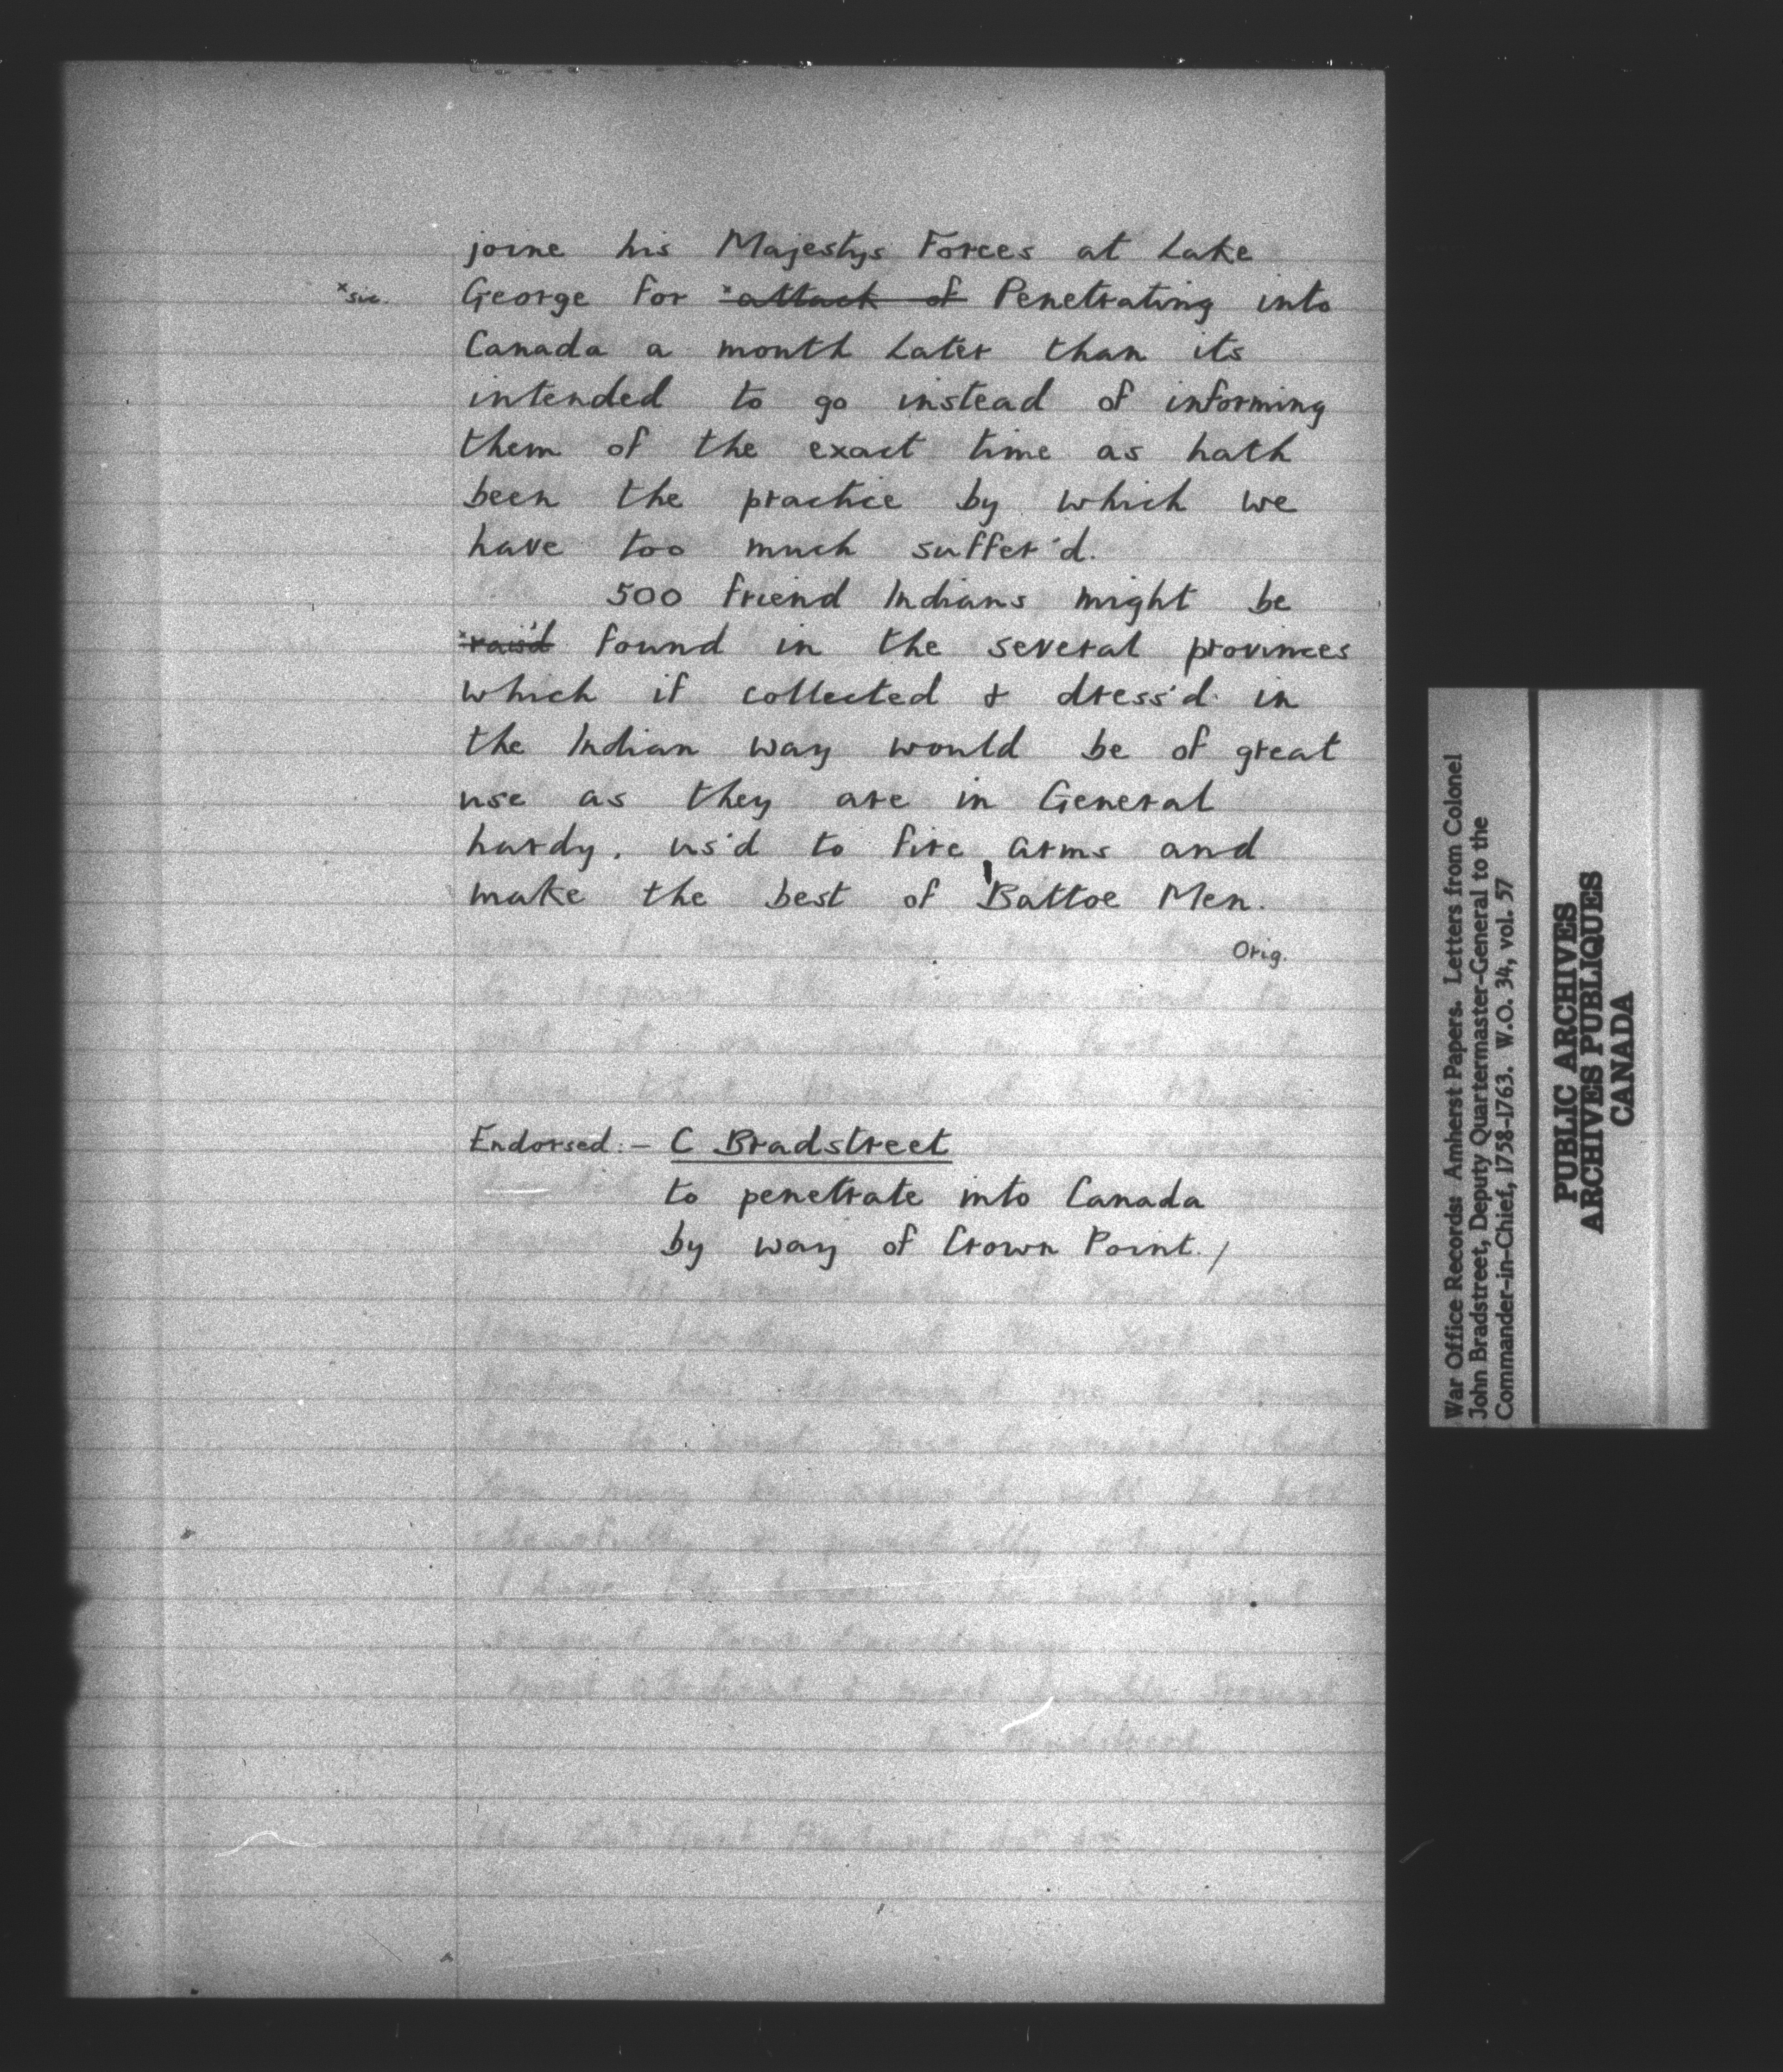 joine his Majestys Forces at Lake
*sic. George for *~~attack of~~ Penetrating into
Canada a month Later than its
intended to go instead of informing
them of the exact time as hath
been the practice by which we
have too much suffer'd.
500 friend Indians might be
*~~rais'd~~ found in the several provinces
which if collected & dress'd in
the Indian way would be of great
use as they are in General
hardy, us'd to fire arms and
make the best of Battoe Men.
Orig.
Endorsed:- C Bradstreet
to penetrate into Canada
by way of Crown Point./
War Office Records: Amherst Papers. Letters from Colonel
John Bradstreet, Deputy Quartermaster-General to the
Commander-in-Chief, 1758-1763. W.O. 34, vol. 57
PUBLIC ARCHIVES
ARCHIVES PUBLIQUES
CANADA